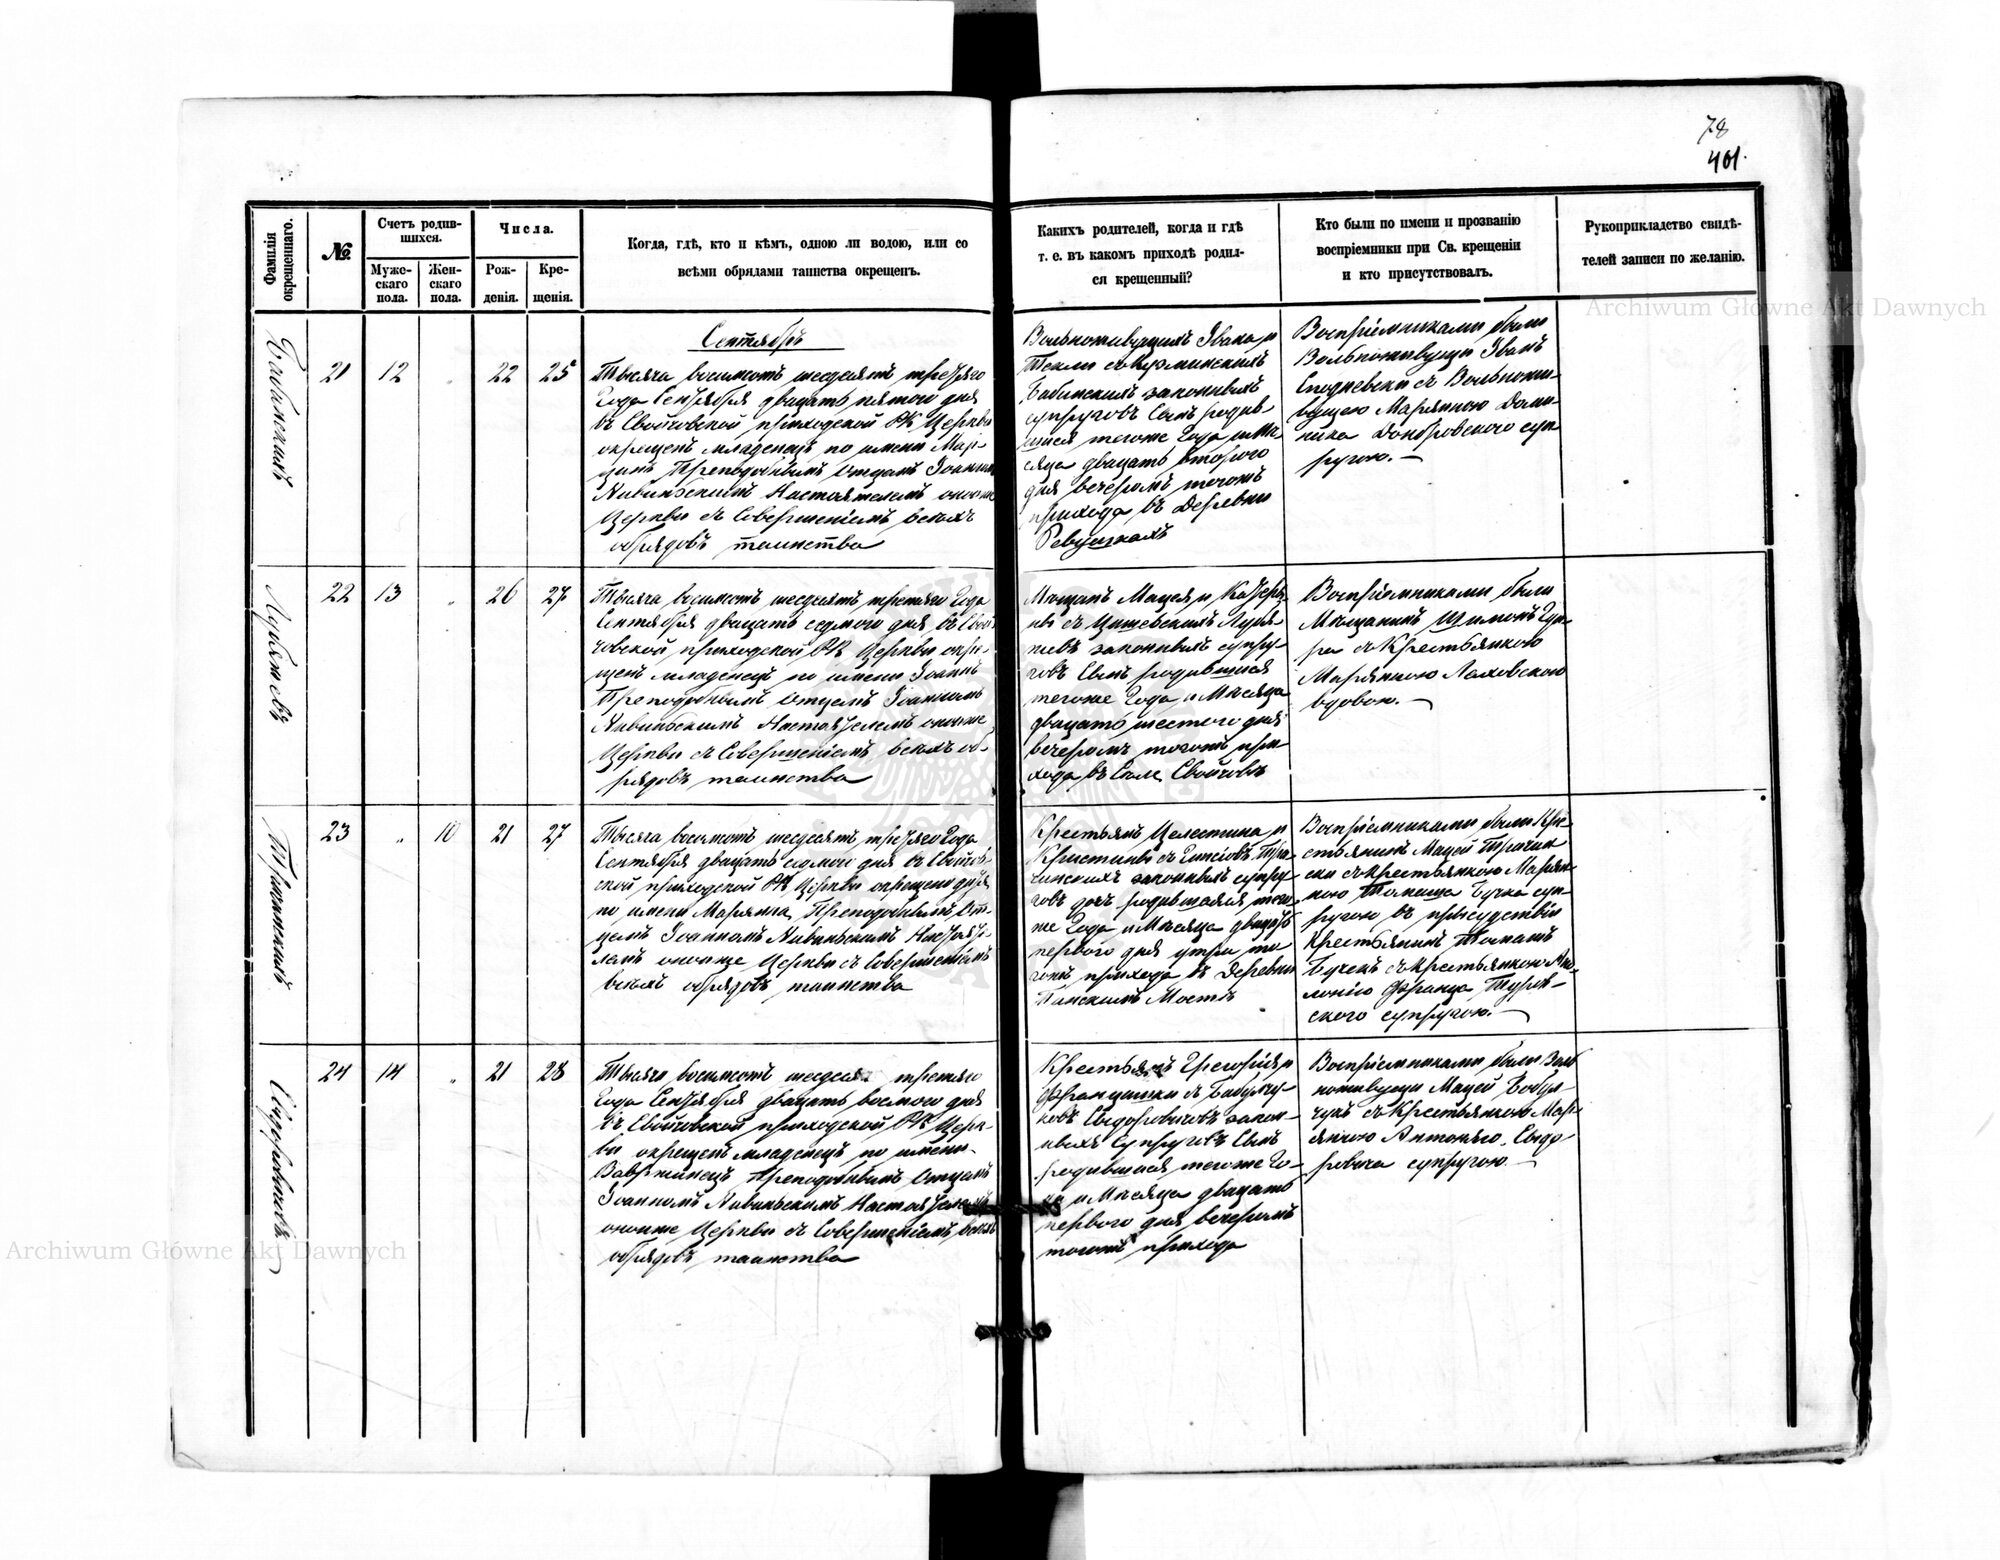 78
401.
Фамилія окрещеннаго.
№
Счетъ родив-
шихся.
Муже-
скаго
пола.
Жен-
скаго
пола.
Числа.
Рож-
денія.
Кре-
щенія.
Когда, гдѣ, кто и кѣмъ, одною ли водою, или со
всѣми обрядами таинства окрещенъ.
Какихъ родителей, когда и гдѣ
т. е. въ какомъ приходѣ родил-
ся крещенный?
Кто были по имени и прозванію
воспріемники при Св. крещеніи
и кто присутствовалъ.
Рукоприкладство свидѣ-
телей записи по желанію.
Archiwum Główne Akt Dawnych
Бабинскихъ
21
12
22
25
Сентябрь
Тысяча восимсотъ шесдсятъ третяго
Года Сентября двацатъ пятого дня
въ Свойчовской приходской РК Церкви
окрещенъ младенецъ по имени Мар-
цинъ Преподобнымъ Отцамъ Іоанномъ
Настоятелемъ оноиже
Церкви съ Совершеніемъ всехъ
обрядовъ таинства
Вольноживущихъ Ивана и
Текли съ
Бабинскихъ законныхъ
супруговъ Сынъ родив-
шийся тогоже Года и Мѣ-
сяца двацатъ второго
дня вечеромъ тогожъ
прихода въ Деревни
Воспріемниками были
Вольноживущи Иванъ
съ Вольножи-
вущею Марянною Доми-
ника Домбровского суп-
ругою. —
22
13
26
27
Тысяча восимсотъ шесдсятъ третяго Года
Сентября двацатъ седмого дня въ Свой-
човской приходской РК Церкви окре-
щенъ младенецъ по имени Іоаннъ
Преподобнымъ Отцемъ Іоанномъ
Настоятелемъ оноиже
Церкви съ Совершеніемъ всехъ об-
рядовъ таинства
Мѣщанъ Мацея и Катери-
ны съ
законныхъ супру-
говъ Сынъ родившийся
тогоже Года и Мѣсяца
двацатъ шестого дня
вечеромъ тогожъ при-
хода въ Селе Свойчовѣ
Воспріемниками были
Мѣщанинъ Шимонъ
съ Крестьянкою
Марянною Лаховскою
вдовою. —
23
10
21
27
Тысяча восимсотъ шесдсятъ третяго Года
Сентября двацатъ седмого дня въ Свойчов-
ской приходской РК Церкви окрещено дитя
по имени Марянна Преподобнымъ От-
цемъ Іоанномъ Настояте-
лемъ оноиже Церкви съ Совершеніемъ
всехъ обрядовъ таинства
Крестьянъ Целестина и
Кристины съ
законныхъ супру-
говъ дочь родившаяся того-
же Года и Мѣсяца двацатъ
первого дня утра то-
гожъ прихода въ Деревни
Панскимъ Мостѣ
Воспріемниками были Кре-
стьянинъ Мацей
съ Крестьянкою Марян-
ною Томаша Бучка суп-
ругою въ присудствіи
Крестьянинъ Томашъ
съ Крестьянкою
Франца
ского супругою. —
Сидоровичовъ
24
14
21
28
Тысяча восимсотъ шесдсятъ третяго
Года Сентября двацатъ восмого дня
въ Свойчовской приходской РК Церк-
ви окрещенъ младенецъ по имени
Вавринецъ Преподобнымъ Отцемъ
Іоанномъ Настоятелемъ
оноиже Церкви съ Совершеніемъ всехъ
обрядовъ таинства
Крестьянъ Грегорія и
Францишки съ
Сидоровичовъ закон-
ныхъ Супруговъ Сынъ
родившийся тогоже Го-
да и Мѣсяца двацатъ
первого дня вечеромъ
тогожъ прихода
Воспріемниками были Воль-
ноживущи Мацей
съ Крестьянкою Мар-
янною Антонего Сидо-
ровича супругою —
Archiwum Główne Akt Dawnych